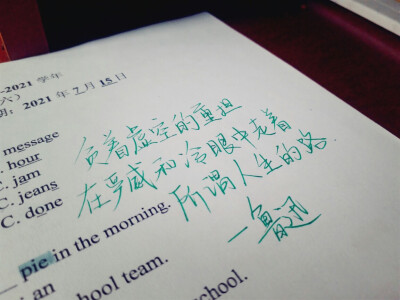 -2021 学年
六）
期：2021 年 7 月 15 日
message
. hour
C. jam
C. jeans
C. done
负着虚空的重担
在严威和冷眼中走着
所谓人生的路.
—鲁迅
pie in the morning.
an
hool team.
school.